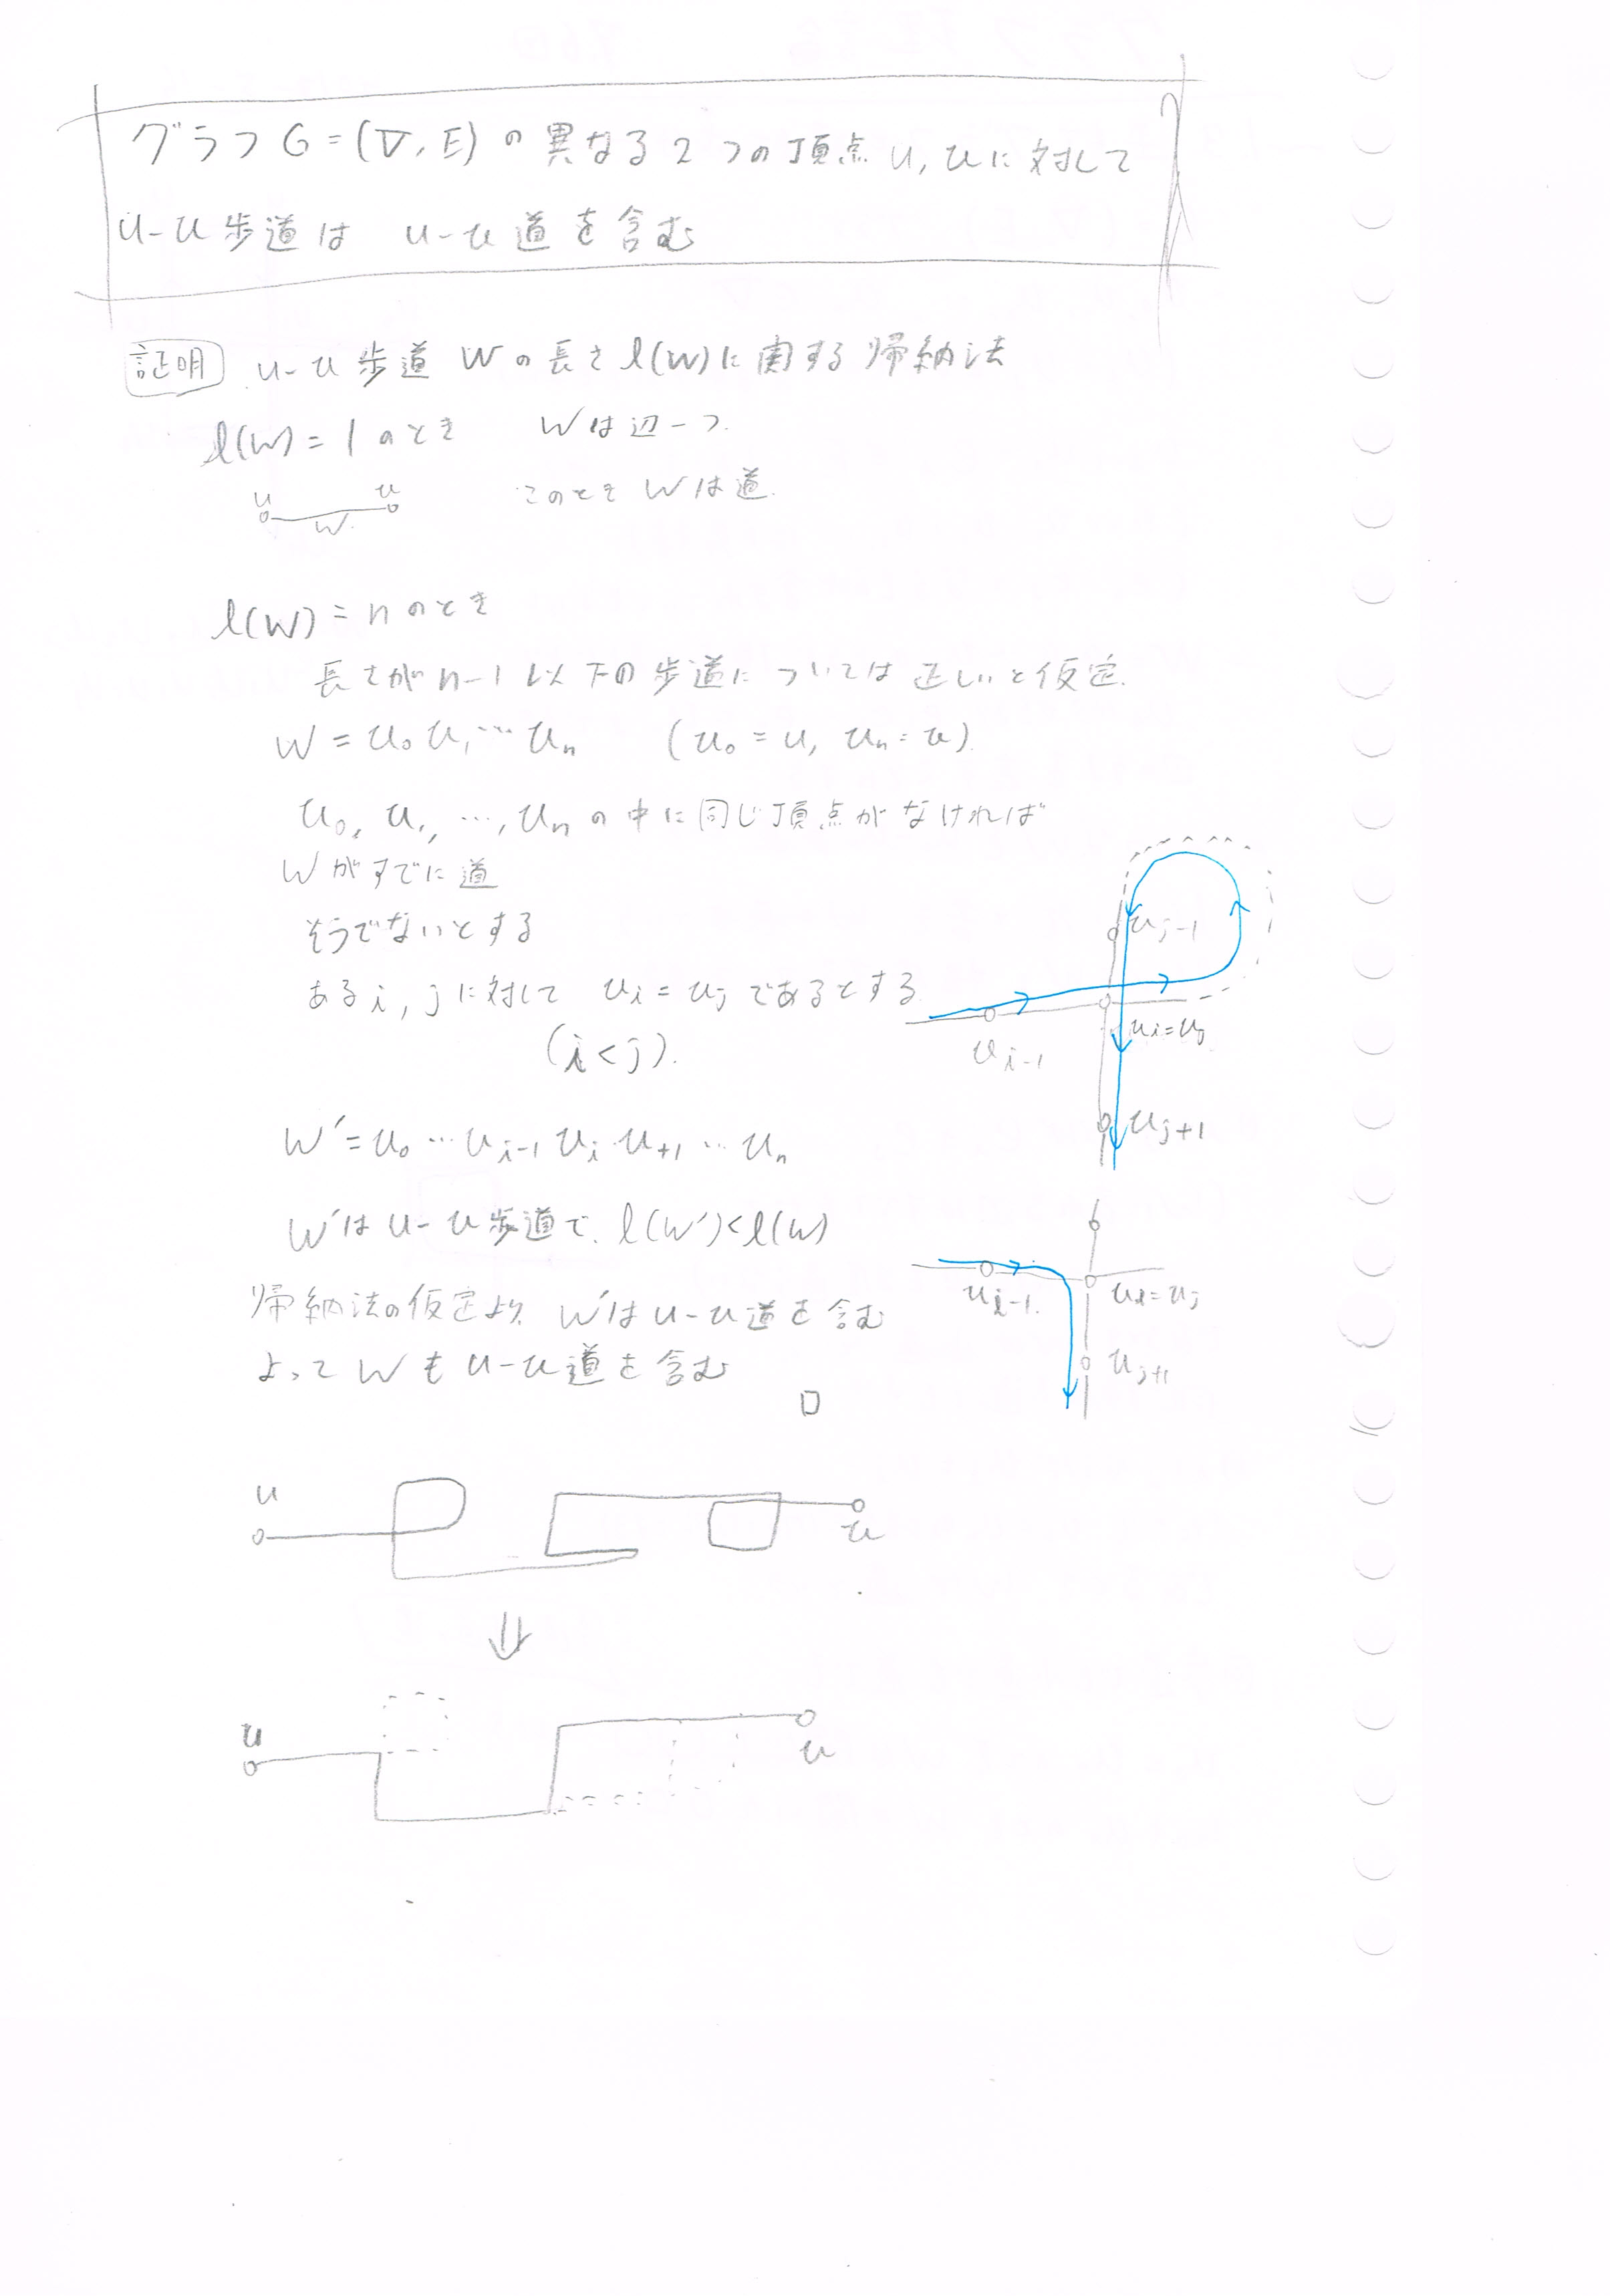 グラフ G=(V,E) の異なる2つの頂点 u, v に対して
u-v 歩道は u-v 道を含む
証明 u-v 歩道 W の長さ l(W) に関する帰納法
l(W) = 1 のとき W は辺一つ.
u v このとき W は道.
W.
l(W) = n のとき
長さが n-1 以下の歩道については正しいと仮定.
W = u₀ u₁ … uₙ (u₀ = u, uₙ = v)
u₀, u₁, …, uₙ の中に同じ頂点がなければ
W がすでに道
そうでないとする
ある i, j に対して uᵢ = uⱼ であるとする
(i < j).
uⱼ₋₁
uᵢ = uⱼ
uᵢ₋₁
uⱼ₊₁
W′ = u₀ … uᵢ₋₁ uᵢ u₊₁ … uₙ
W′ は u-v 歩道で, l(W′) < l(W)
帰納法の仮定より, W′ は u-v 道を含む
よって W も u-v 道を含む
□
uᵢ₋₁. uᵢ = uⱼ
uⱼ₊₁
u
v
⇓
u
v